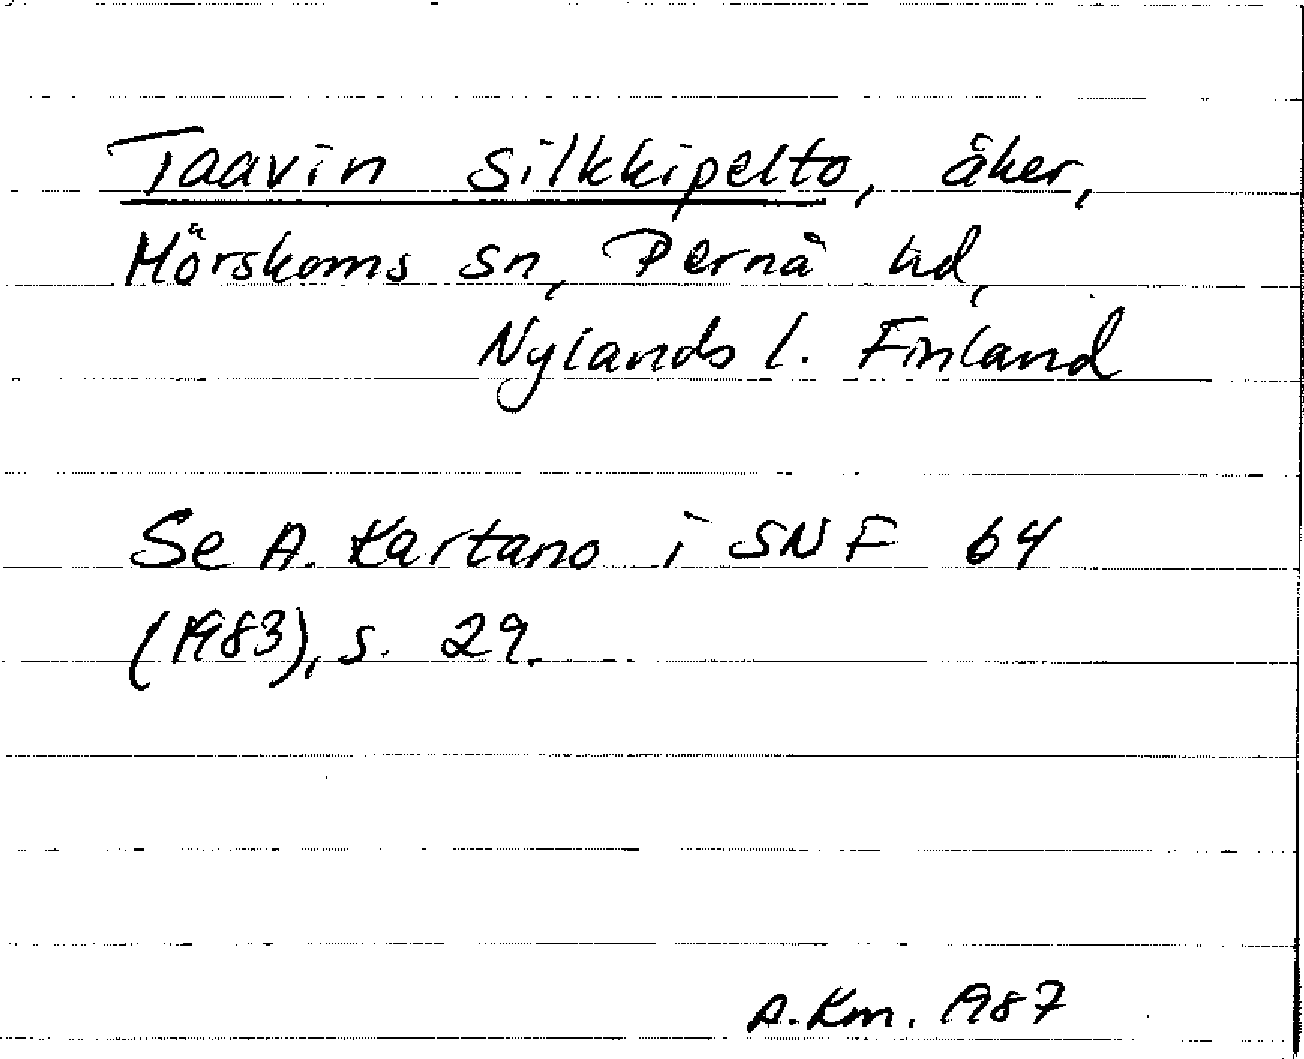 Taavin Silkkipelto, åker,
Mörskoms sn, Pernå hd,
Nylands l. Finland
Se A. Kartano i SNF 64
(1983), s. 29.
A. Km. 1987